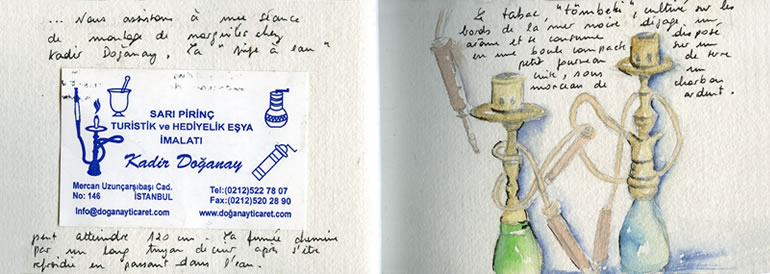 ... Nous assistons à une séance
de montage de narguilés chez
Kadir Doğanay, la "pipe à eau"
SARI PİRİNÇ
TURİSTİK ve HEDİYELİK EŞYA
İMALATI
Kadir Doğanay
Mercan Uzunçarşıbaşı Cad.
No: 146 İSTANBUL
Info@doganayticaret.com
Tel:(0212)522 78 07
Fax:(0212)520 28 90
www.doğanayticaret.com
peut atteindre 120 cm. La fumée chemine
par un long tuyau de cuir après s'être
refroidie en passant dans l'eau.
Le tabac, "tömbeki", cultivé sur les
bords de la mer noire dégage un
arôme et se consume disposé
en une boule compacte sur un
petit fourneau de terre
cuite, sous un
morceau de charbon
ardent.